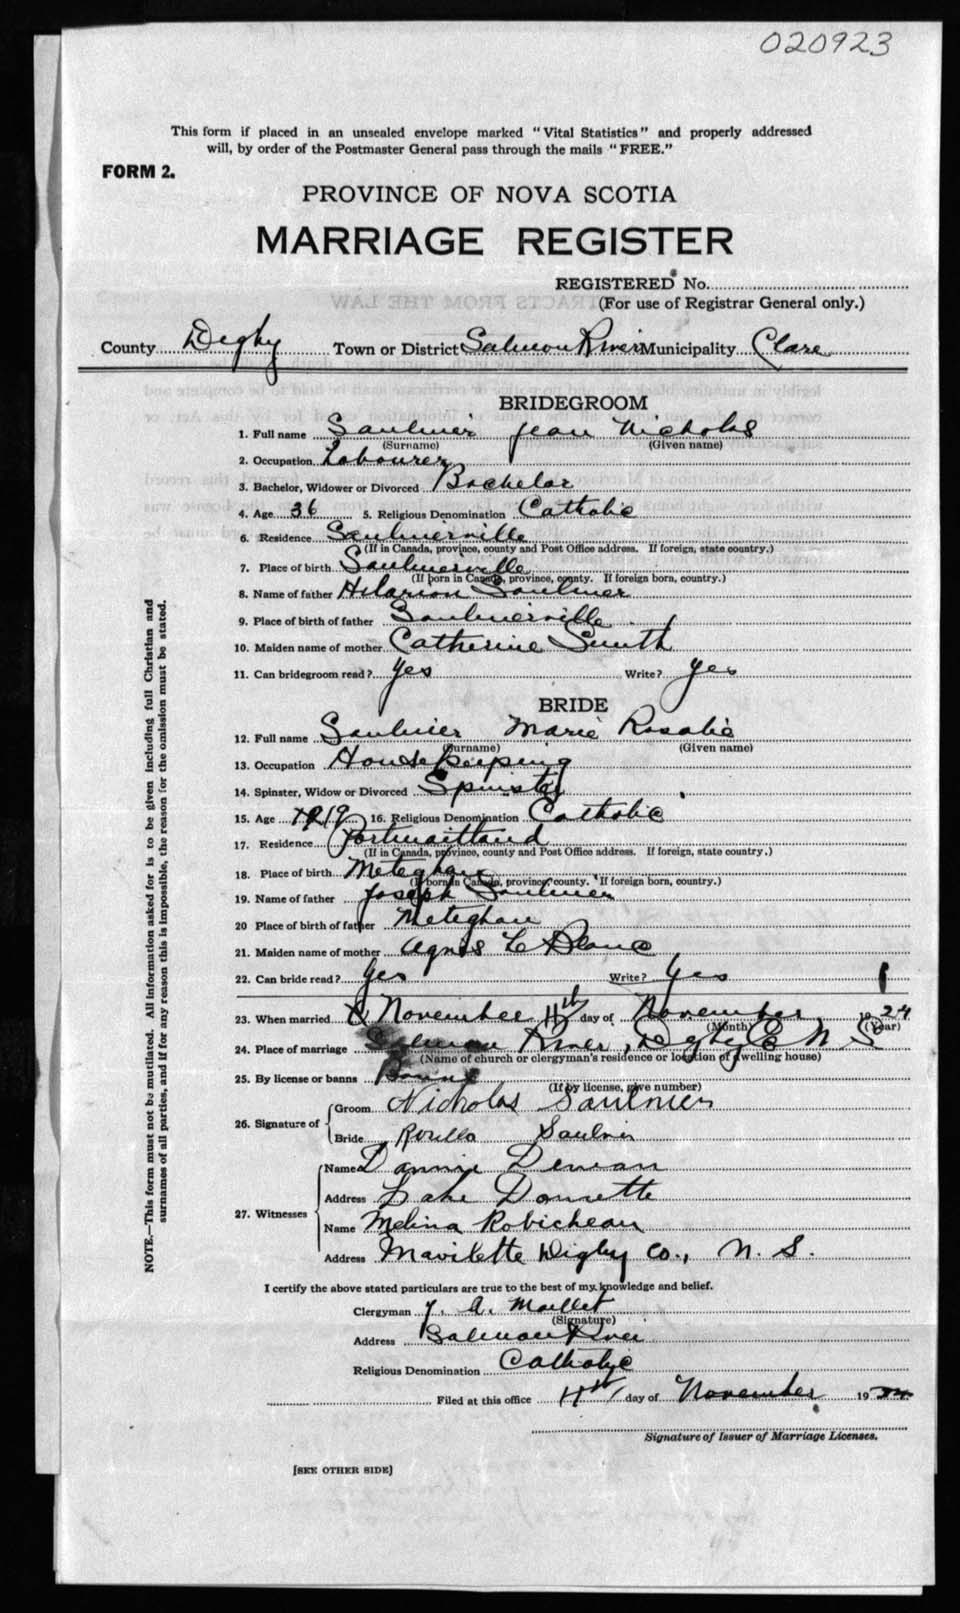 020923
This form if placed in an unsealed envelope marked "Vital Statistics" and properly addressed
will, by order of the Postmaster General pass through the mails "FREE."
FORM 2.
PROVINCE OF NOVA SCOTIA
MARRIAGE REGISTER
REGISTERED No.
(For use of Registrar General only.)
County Digby Town or District Salmon River Municipality Clare
BRIDEGROOM
1. Full name Saulnier Jean Nicholas
(Surname) (Given name)
2. Occupation Labourer
3. Bachelor, Widower or Divorced Bachelor
4. Age 36 5. Religious Denomination Catholic
6. Residence Saulnierville
(If in Canada, province, county and Post Office address. If foreign, state country.)
7. Place of birth Saulnierville
(If born in Canada, province, county. If foreign born, country.)
8. Name of father Hilarion Saulnier
9. Place of birth of father Saulnierville
10. Maiden name of mother Catherine Smith
11. Can bridegroom read? Yes Write? Yes
BRIDE
12. Full name Saulnier Marie Rosalie
(Surname) (Given name)
13. Occupation Housekeeping
14. Spinster, Widow or Divorced Spinster
15. Age 19 16. Religious Denomination Catholic
17. Residence Portmaitland
(If in Canada, province, county and Post Office address. If foreign, state country.)
18. Place of birth Meteghan
(If born in Canada, province, county. If foreign born, country.)
19. Name of father Joseph Saulnier
20 Place of birth of father Meteghan
21. Maiden name of mother Agnes LeBlanc
22. Can bride read? Yes Write? Yes
23. When married November 4th day of November 1924
(Month) (Year)
24. Place of marriage Salmon River, Digby C N S
(Name of church or clergyman's residence or location of dwelling house)
25. By license or banns Banns
(If by license, give number)
26. Signature of
Groom Nicholas Saulnier
Bride Saulnier
27. Witnesses
Name Dannie
Address Lake Doucette
Name Melina Robicheau
Address Mavilette Digby Co., N. S.
I certify the above stated particulars are true to the best of my knowledge and belief.
Clergyman A. Maillet
(Signature)
Address Salmon River
Religious Denomination Catholic
Filed at this office 4th day of November 19
Signature of Issuer of Marriage Licenses.
[SEE OTHER SIDE]
NOTE.—This form must not be mutilated. All information asked for is to be given including full Christian and
surnames of all parties, and if for any reason this is impossible, the reason for the omission must be stated.